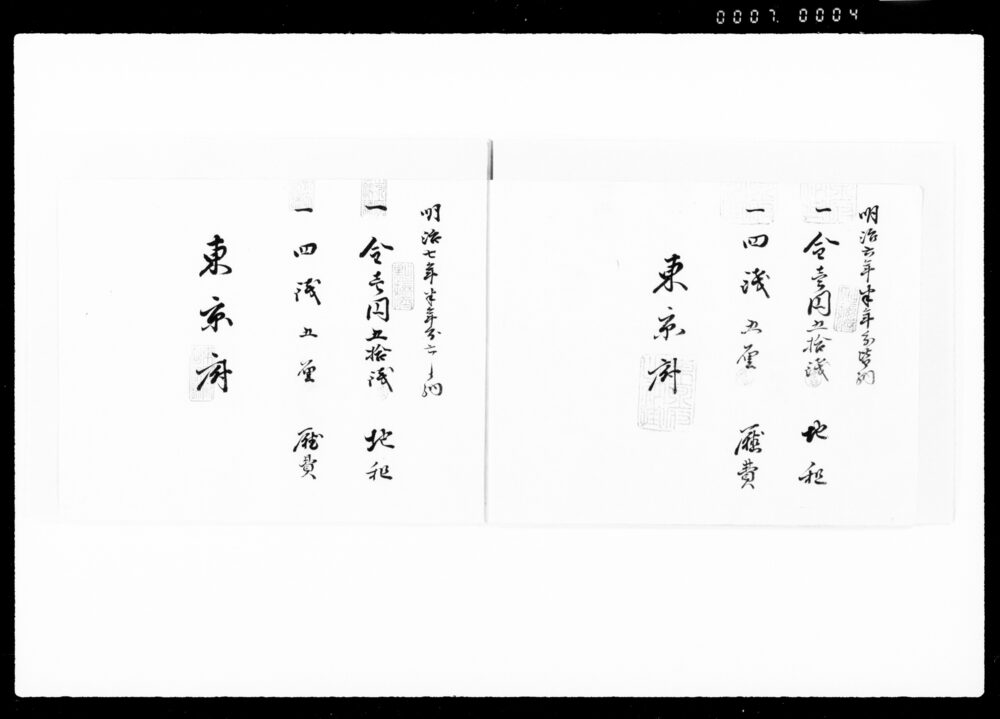 0007. 0004
明治六年半年分皆納
一 金壱円五拾銭 地租
一 四銭五厘 費
東京府
明治七年半年分
一 金壱円五拾銭 地租
一 四銭五厘 費
東京府